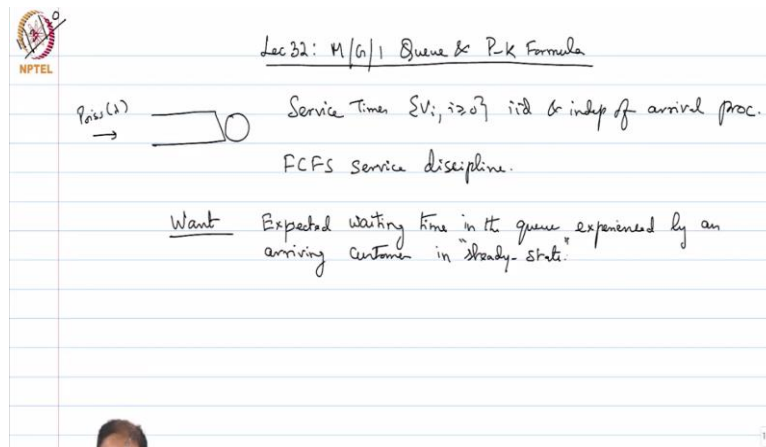 NPTEL
Lec 32: M/G/1 Queue & P-K Formula
Poiss(λ)
Service Times {Vi, i≥0} iid & indep of arrival proc.
FCFS service discipline.
Want Expected waiting time in the queue experienced by an
arriving customer in "steady-state."
1